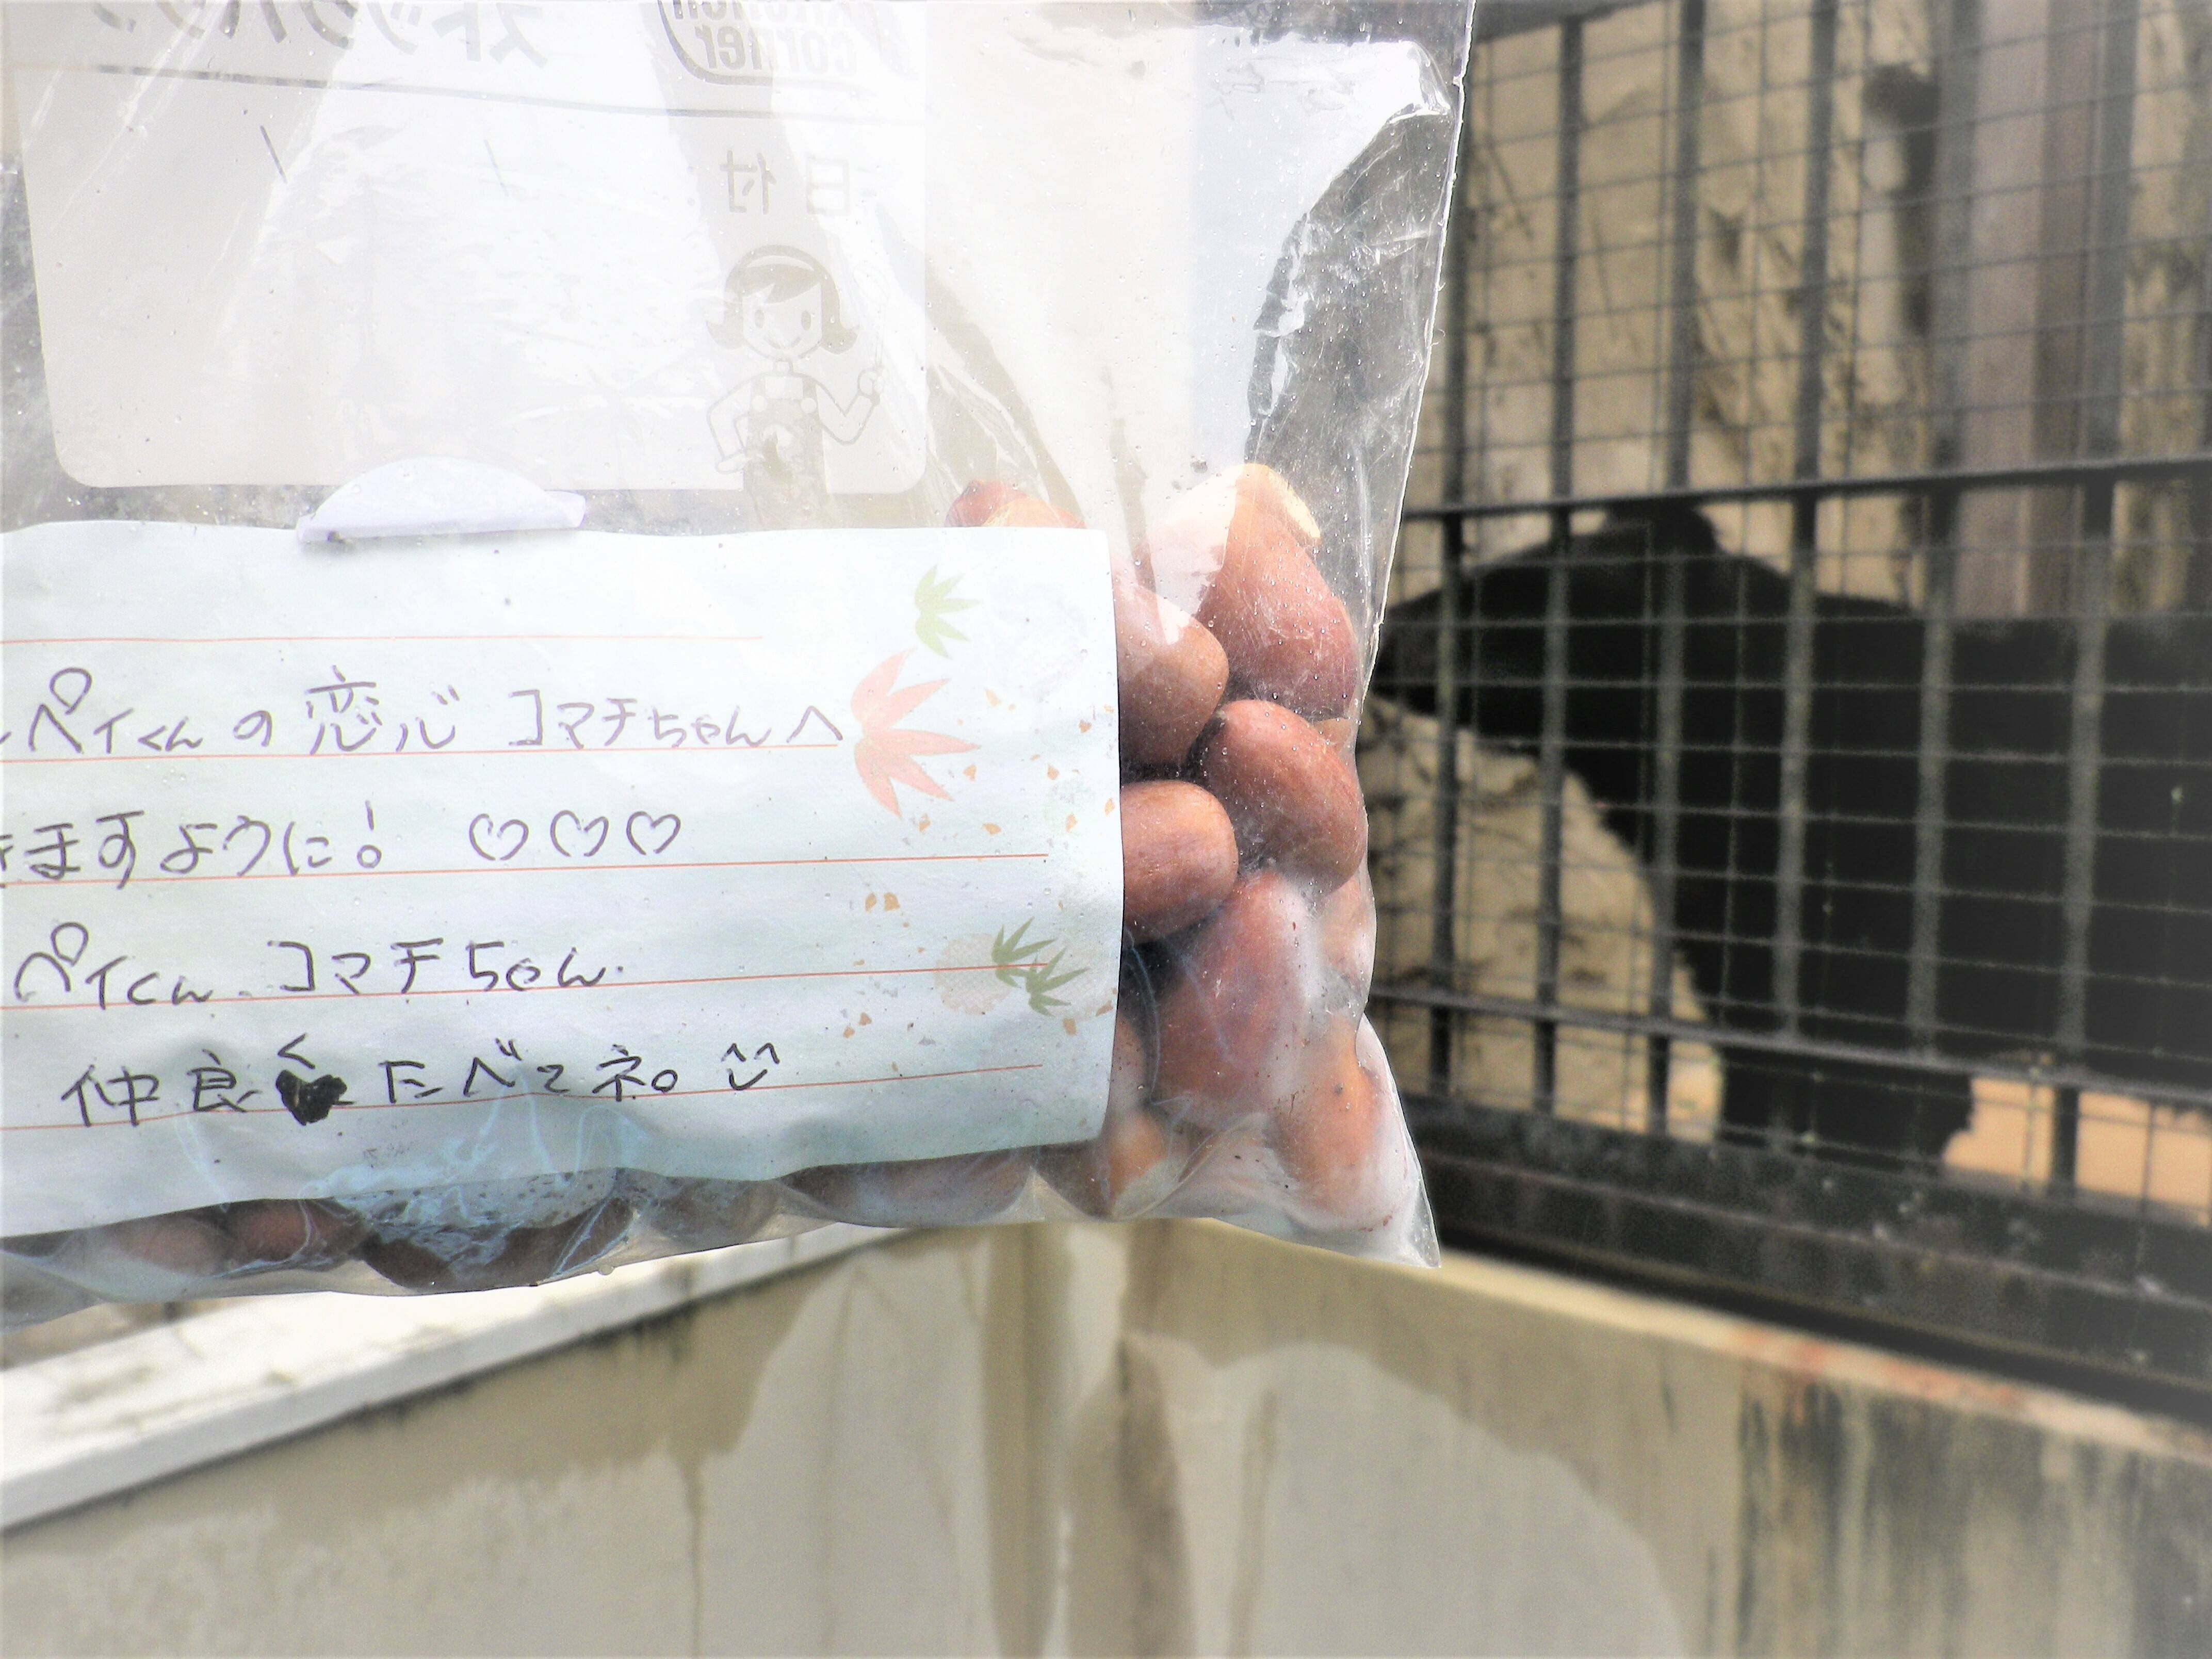 ストックバッグ
kitchen
corner
日付
ペイくんの恋心 コマチちゃんへ
きますように! ♡♡♡
ペイくん、コマチちゃん
仲良くたべてネ。